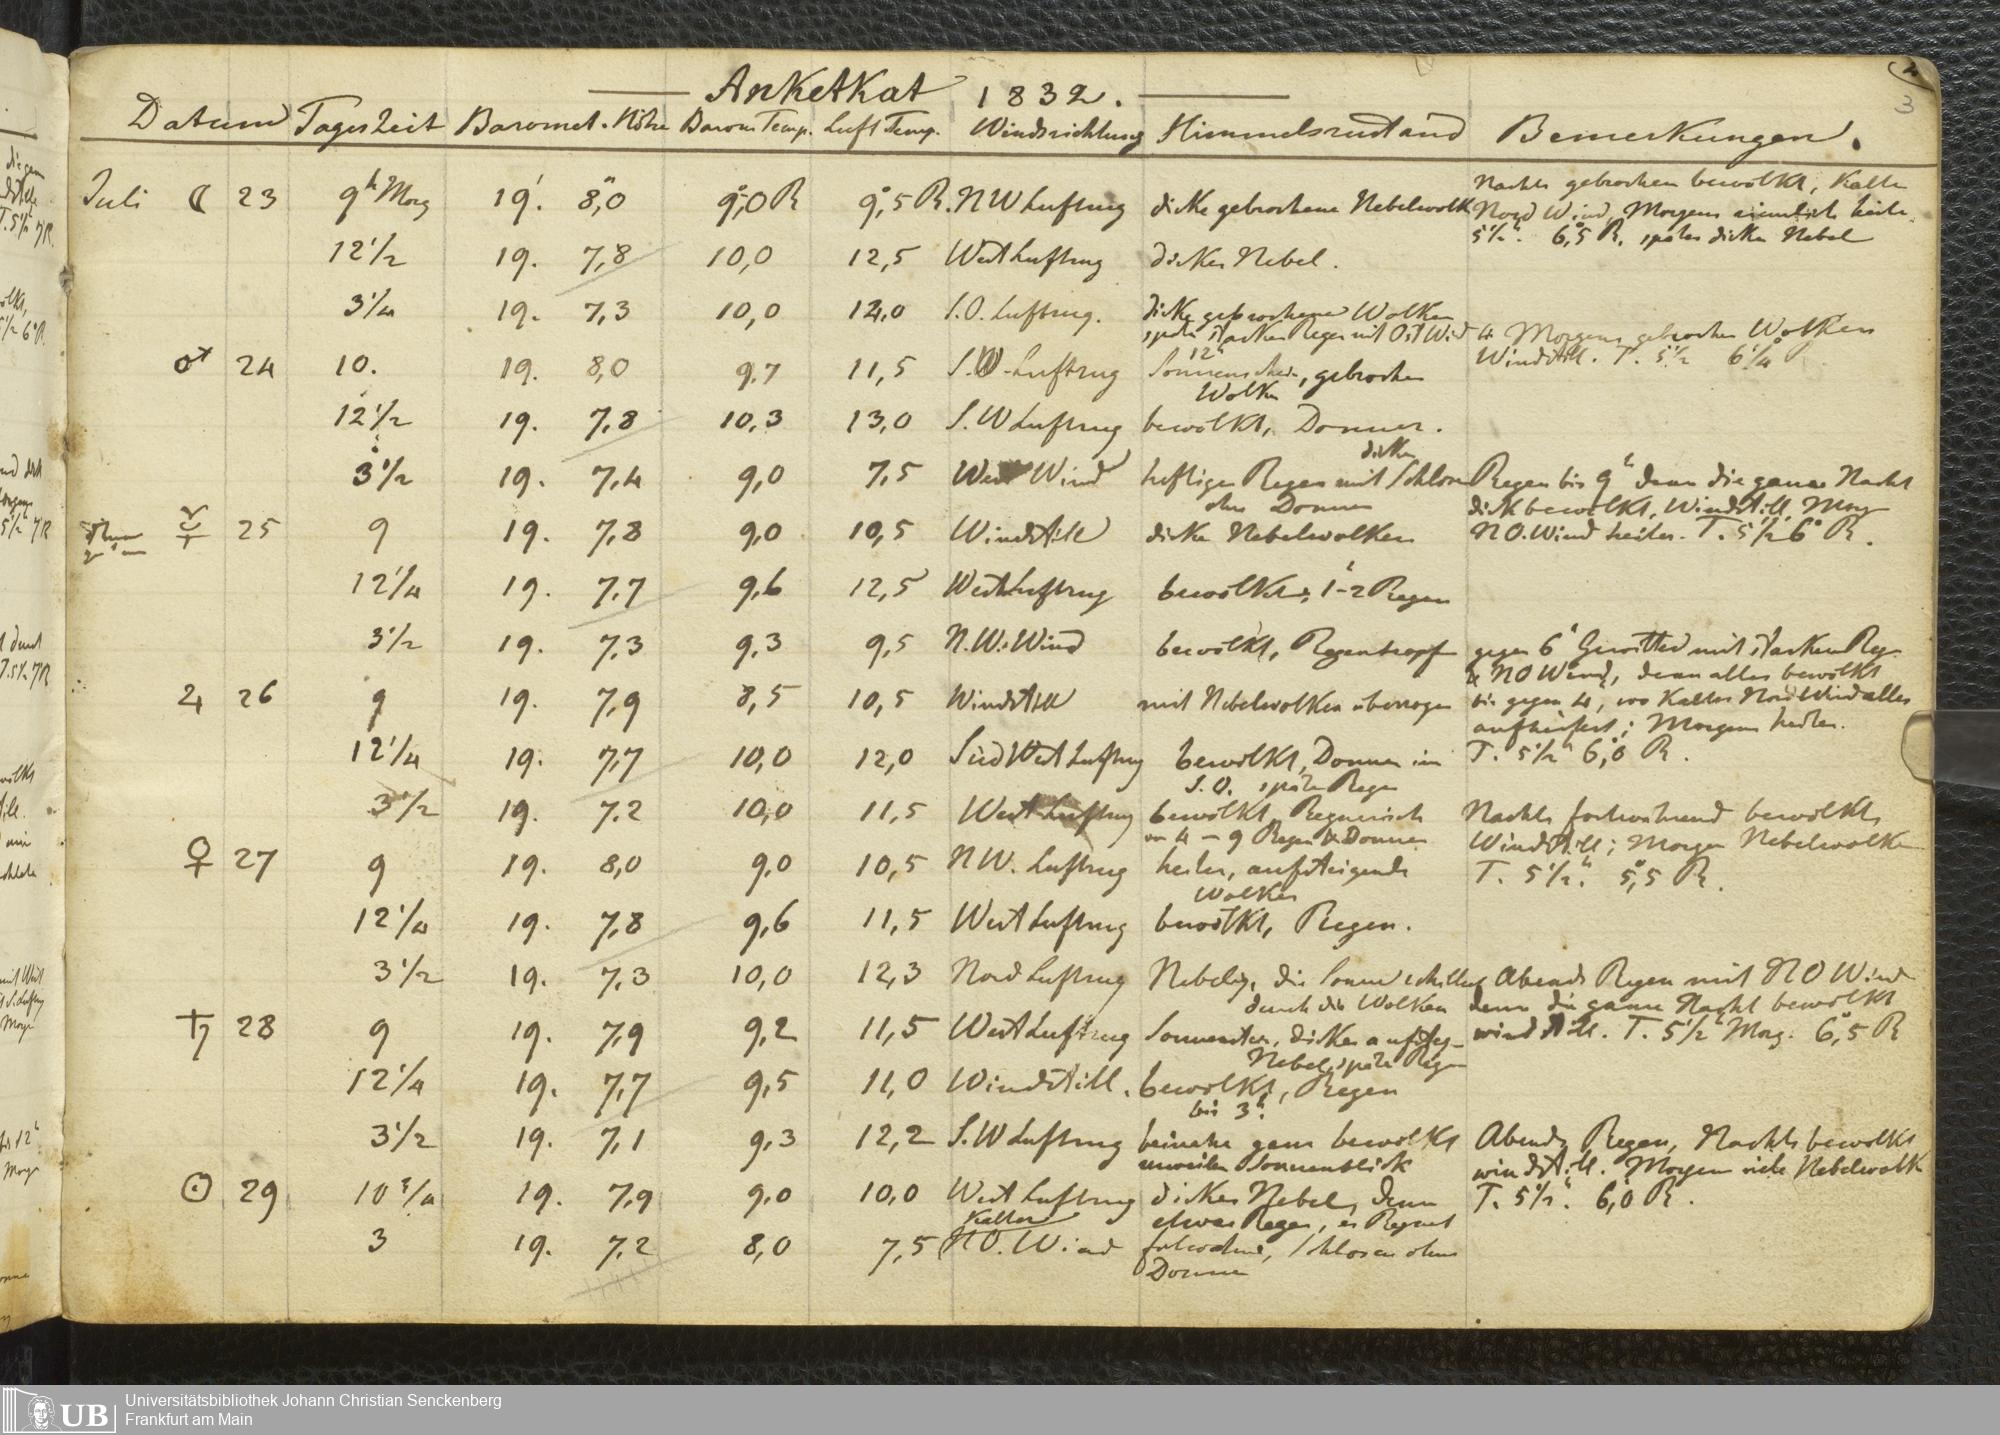 Anketkat 1832.
Datum Tageszeit Baromet. Höhe Barom Temp. Luft Temp. Windsrichtung Himmelszustand Bemerkungen.
3
Juli ☾ 23 9h Morg 19.' 8,0" 9,0 R 9,5 R. NW Luftzug dicke gebrochene Nebelwolk
Nachts gebrochen bewölkt, kalter
Nord Wind, Morgens ziemlich heiter
5½h. 6,5 R. später dicker Nebel
12½ 19. 7,8 10,0 12,5 West Luftzug dicker Nebel.
3¼ 19. 7,3 10,0 12,0 S.O. Luftzug. dicke gebrochene Wolken
später starker Regen mit Ost Wind
♂ 24 10. 19. 8,0 9,7 11,5 S.W. Luftzug Sonnenschein, gebrochen
12h
Wolken
Morgens gebrochen Wolken
Windstill. T. 5½ 6¼°
12½ 19. 7,8 10,3 13,0 S.W Luftzug bewölkt, Donner.
3½ 19. 7,4 9,0 7,5 West Wind heftiger Regen mit Schlosen
dicken
ohne Donner
Regen bis 9h dann die ganze Nacht
dick bewölkt, Windstill, Morg
NO. Wind heiter. T. 5½ 6° R.
☿ 25 9 19. 7,8 9,0 10,5 Windstill dicke Nebelwolken
12¼ 19. 7,7 9,6 12,5 West Luftzug bewölkt, 1-2h Regen
3½ 19. 7,3 9,3 9,5 N.W. Wind bewölkt, Regentropf
gegen 6h Gewitter mit starken Reg
& NO Wind, dann alles bewölkt
bis gegen 4, wo kalter Nord Wind alles
aufheitert; Morgens heiter.
T. 5½h 6,0 R.
♃ 26 9 19. 7,9 8,5 10,5 Windstill mit Nebelwolken überzogen
12¼ 19. 7,7 10,0 12,0 Süd West Luftzug bewölkt, Donner in
S.O. später Regen
3½ 19. 7,2 10,0 11,5 West Luftzug bewölkt, Regnerisch
von 4 – 9 Regen & Donner
Nachts fortwährend bewölkt,
Windstill; Morgen Nebelwolken
T. 5½h. 5,5 R.
♀ 27 9 19. 8,0 9,0 10,5 NW. Luftzug heiter, aufsteigende
Wolken
12¼ 19. 7,8 9,6 11,5 West Luftzug bewölkt, Regen.
3½ 19. 7,3 10,0 12,3 Nord Luftzug Nebelig, die Sonne schillert
durch die Wolken
Abends Regen mit NO Wind
dann die ganze Nacht bewölkt
windstill. T. 5½h Morg. 6,5 R
♄ 28 9 19. 7,9 9,2 11,5 West Luftzug dicker aufsteg-
Nebel, später Regen
12¼ 19. 7,7 9,5 11,0 Windstill. bewölkt, Regen
bis 3h.
3½ 19. 7,1 9,3 12,2 S.W Luftzug beinahe ganz bewölkt
zuweilen Sonnenblick
Abends Regen, Nachts bewölkt
windstill. Morgen viele Nebelwolk
T. 5½h. 6,0 R.
☉ 29 10¾ 19. 7,9 9,0 10,0 West Luftzug dicker Nebel, dann
etwas Regen, es Regnet
3 19. 7,2 8,0 7,5 kalter
NO. Wind Schlosen ohne
Donner
Universitätsbibliothek Johann Christian Senckenberg
Frankfurt am Main
UB